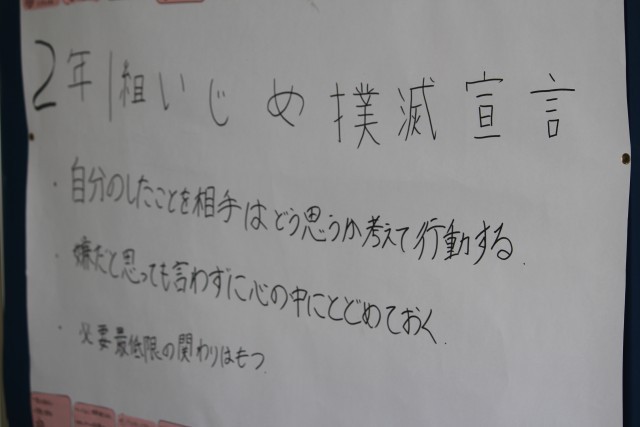 2年1組いじめ撲滅宣言
・自分のしたことを相手はどう思うか考えて行動する.
・嫌だと思っても言わずに心の中にとどめておく.
・必要最低限の関わりはもつ